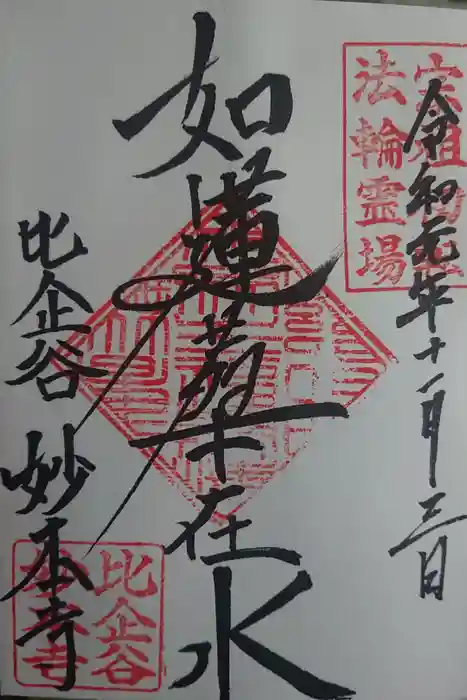 令和元年十一月三日
法輪霊場
如蓮華在水
比企谷
妙本寺
比企谷
妙本寺